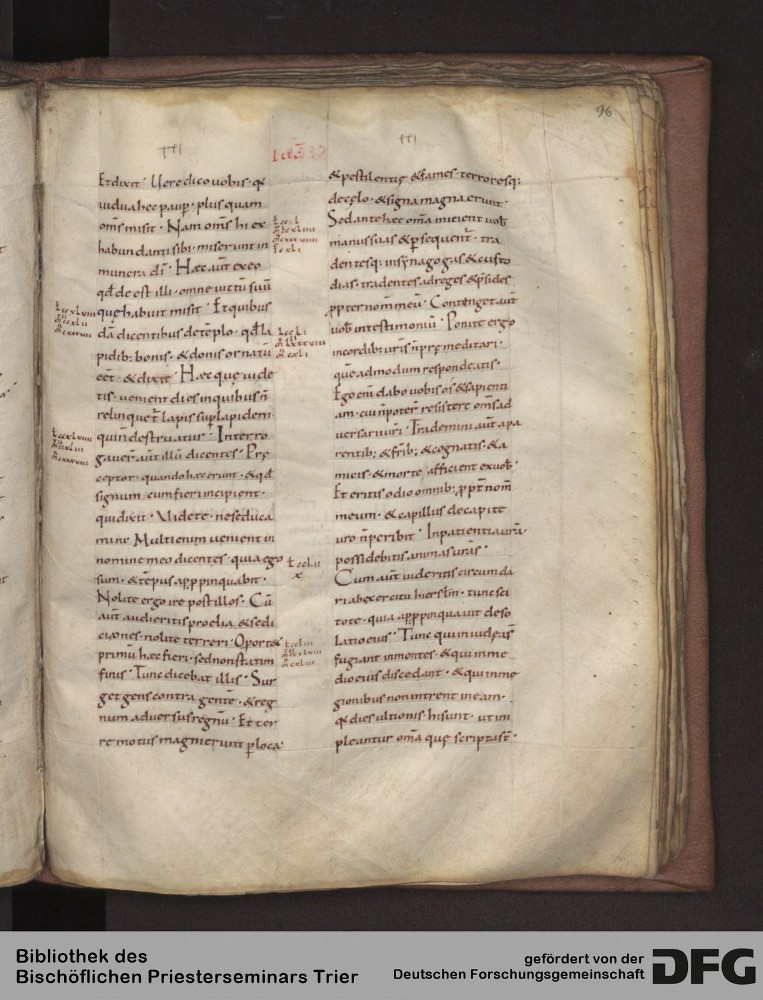 96
Et dixit· Uere dico uobis· qa
uidua hec paup· plus quam
om̄s misit· Nam om̄s hi ex
habundanti sibi· miserunt in
munera dī· Haec aut̄ ex eo
qd̄ de est illi· omne uictū suū
quę habuit misit· Et quibus
dā dicentibus de tēplo· qd̄ la
pidib: bonis· & donis ornatū
eēt· & dixit· Haec quę uide
tis· uenient dies in quibus n̄
relinquet̄ lapis sup lapidem·
qui n̄ destruatur· Interro
gauer̄ aut̄ illū dicentes· Prę
ceptor· quando haec erunt· & qd̄
signum· cum fieri incipient·
qui dixit· Uidete· ne seduca
mini· Multi enim uenient in
nomine meo dicentes· quia ego
sum· & tēpus appinquabit·
Nolite ergo ire post illos· Cū
aut̄ audieritis proelia· & sedi
ciones· nolite terreri· Oport&
primū haec fieri· sed non statim
finis· Tunc dicebat illis· Sur
g& gens contra gentē· & reg
num aduersus regnū· Et ter
re motus magni erunt p loca·
& pestilentię & fames· terroresq:
de cęlo· & signa magna erunt·
Sed ante haec om̄a inicient uob̄
manus suas & psequent̄· tra
dentes q: in synagogas & custo
dias· tradentes ad reges & p̄sides
ppter nom̄ meū· Continget aut̄
uob̄ in testimoniū· Ponite ergo
in cordib: ur̄is n̄ prę meditari·
quę admodum respondeatis·
Ego em̄ dabo uobis os̄ & sapienti
am· cui n̄ poter̄ resistere om̄s ad
uersarii ur̄i· Trademini aut̄ a pa
rentib; & frīb; & cognatis· & a
micis· & morte afficient ex uob̄·
Et eritis odio omnib; ppt̄ nom̄
meum· & capillus de capite
ur̄o n̄ peribit· In patientia ur̄a·
possidebitis animas ur̄as·
Cum aut̄ uideritis circum da
ri ab exercitu hierslm̄· tunc sci
tote· quia appinquauit deso
latio eius· Tunc qui in iudęa s̄
fugiant in montes· & qui in me
dio eius discedant· & qui in re
gionibus non intrent in eam·
qa dies ultionis hi sunt· ut im
pleantur om̄a quę scripta st̄·
Bibliothek des
Bischöflichen Priesterseminars Trier
gefördert von der
Deutschen Forschungsgemeinschaft
DFG